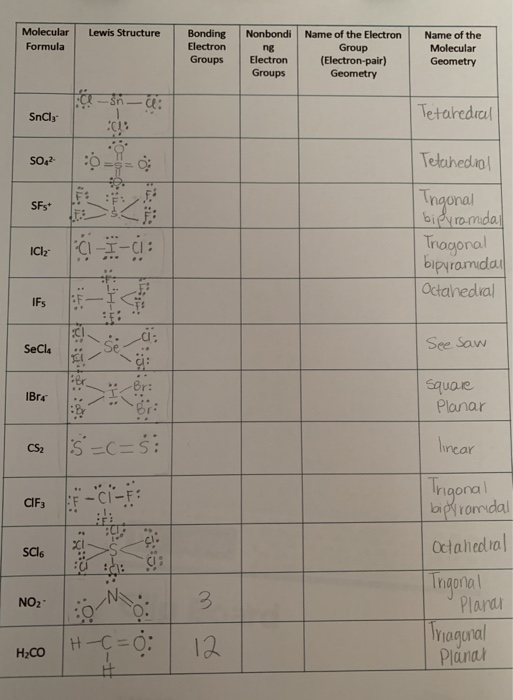 Molecular Formula Lewis Structure Bonding Electron Groups Nonbondi ng Electron Groups Name of the Electron Group (Electron-pair) Geometry Name of the Molecular Geometry
SnCl3- :Cl – Sn – Cl: Tetahedral
:Cl:
SO4 2- :O = S = O: Tetahedral
O
SF5+ F F F S F F Trigonal
bipyramidal
ICl2- :Cl – I – Cl: Triagonal
bipyramidal
IF5 :F – I F F F F Octahedral
SeCl4 :Cl Se Cl: See Saw
:Cl Cl:
IBr4- :Br I Br: square
:Br Br: Planar
CS2 :S = C = S: linear
ClF3 :F – Cl – F: Trigonal
:F: bipyramidal
SCl6 :Cl Cl S Cl: Octahedral
:Cl :Cl: Cl:
NO2- N 3 Trigonal
:O O: Planar
H2CO H – C = O: 12 Triagonal
H Planar